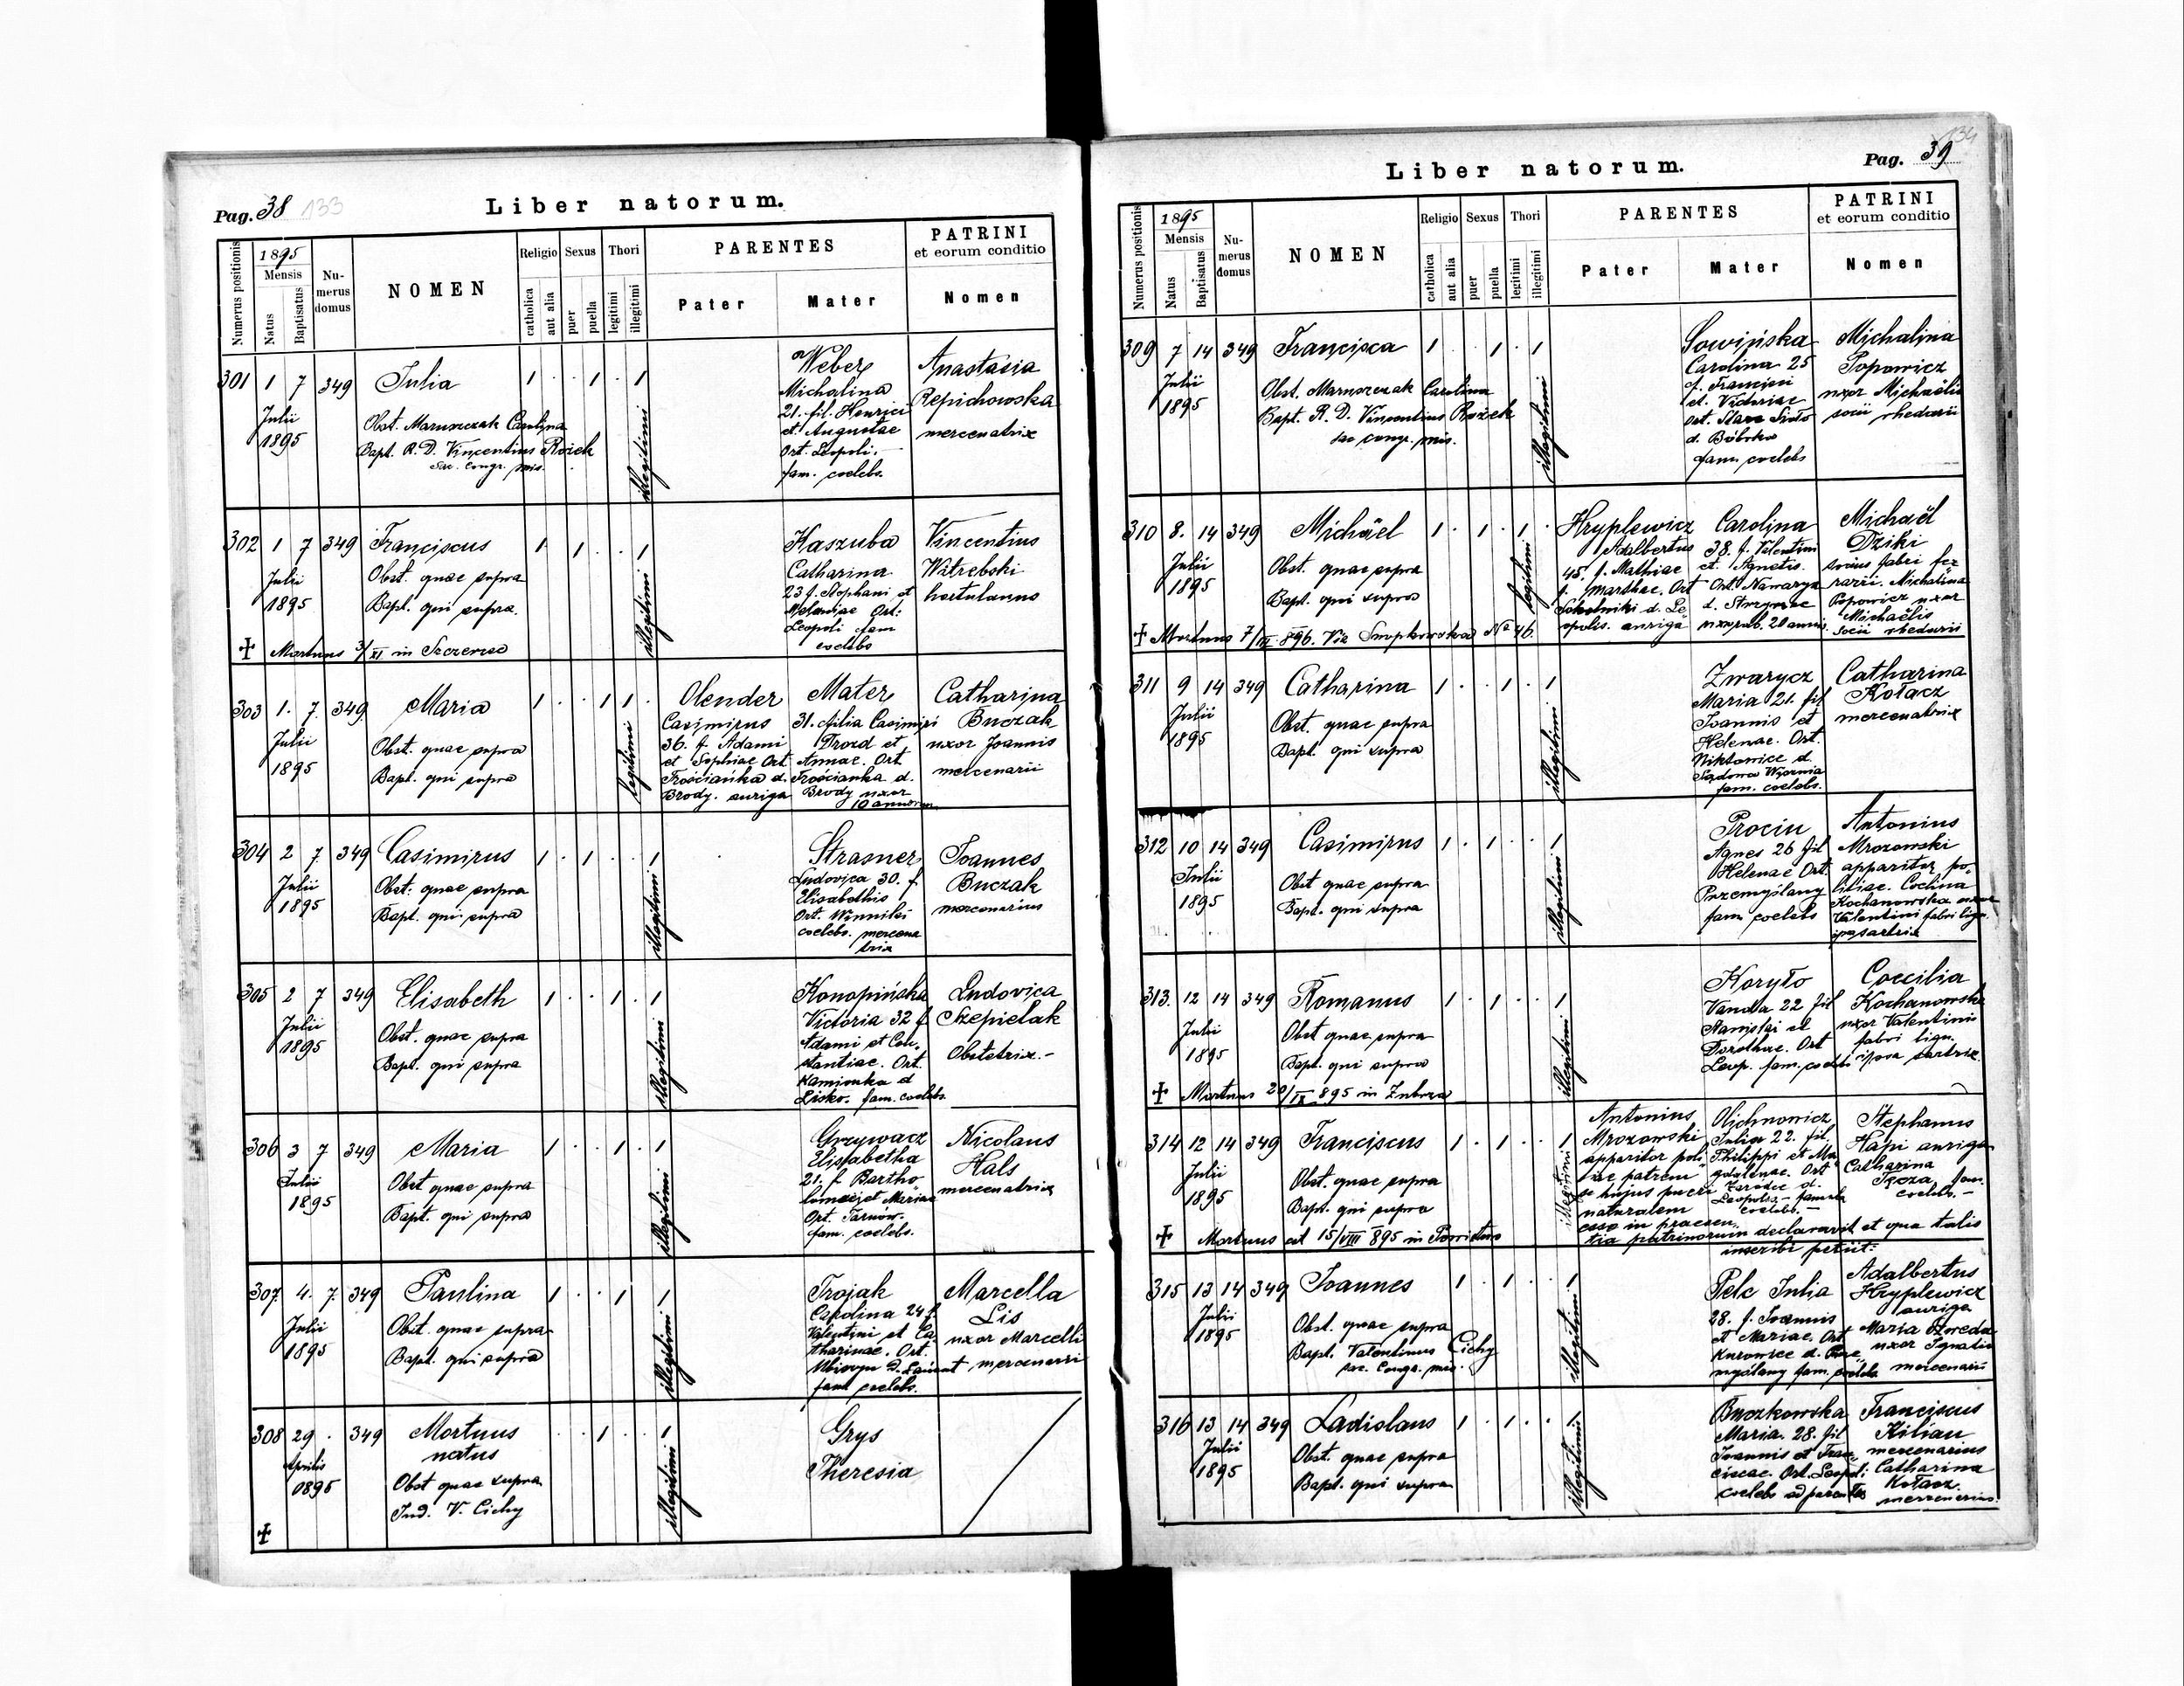 Pag. 38 133
Liber natorum.
Numerus positionis
1895
Mensis
Natus
Baptisatus
Nu-
merus
domus
NOMEN
Religio
catholica
aut alia
Sexus
puer
puella
Thori
legitimi
illegitimi
PARENTES
Pater
Mater
PATRINI
et eorum conditio
Nomen
301 1 7 349 Julia 1 . . 1 . 1
Julii
1895
Obst. Maruszczak Carolina
Bapt. R. D. Vincentius Rożek
Sac. Congr. mis.
illegitimi
Weber
Michalina
21. fil. Henrici
et Augustae
Ort. Leopoli.
fam. coelebs.
Anastasia
Repichowska
mercenatrix
302 1 7 349 Franciscus 1 . 1 . . 1
Julii
1895
Obst. quae supra
Bapt. qui supra.
Mortuus 3/XI in Szczerzec
illegitimi
Kaszuba
Catharina
23 f. Stephani et
Melaniae Ort:
Leopoli fam
coelebs
Vincentius
Witrebski
hortulanus
303 1. 7. 349 Maria 1 . . 1 1 .
Julii
1895
Obst. quae supra
Bapt. qui supra
legitimi
Olender
Casimirus
36. f. Adami
et Sophiae Ort
Trościańka d.
Brody. auriga
Mater
31. filia Casimiri
Drozd et
Annae. Ort
Trościanka d.
Brody uxor
10 annorum
Catharina
Buczak
uxor Joannis
mercenarii
304 2 7 349 Casimirus 1 . 1 . . 1
Julii
1895
Obst. quae supra
Bapt. qui supra
illegitimi
Strasner
Ludovica 30. f
Elisabethis
Ort. Winniki
coelebs. mercena
trix
Joannes
Buczak
mercenarius
305 2 7 349 Elisabeth 1 . . 1 . 1
Julii
1895
Obst. quae supra
Bapt. qui supra
illegitimi
Konopińska
Victoria 32 f
Adami et Con-
stantiae. Ort.
Kamionka d
Lisko. fam. coelebs.
Ludovica
Szepielak
Obstetrix.-
306 3 7 349 Maria 1 . . 1 . 1
Julii
1895
Obst quae supra
Bapt. qui supra
illegitimi
Grzywacz
Elisabetha
21. f. Bartho
lomaei et Mariae
Ort. Tarnów.
fam. coelebs.
Nicolaus
Hals
mercenatrix
307. 4. 7. 349 Paulina 1 . . 1 . 1
Julii
1895
Obst. quae supra
Bapt. qui supra
illegitimi
Trojak
Carolina 24 f
Valentini et Ca-
tharinae. Ort.
fam coelebs.
Marcella
Lis
uxor Marcelli
mercenarii
308 29 . 349 Mortuus . . 1 . . 1
natus
Aprilis
1895
Obst quae supra
Ind. V. Cichy
illegitimi
Grys
Theresia
Liber natorum.
Pag. 39 134
Numerus positionis
1895
Mensis
Natus
Baptisatus
Nu-
merus
domus
NOMEN
Religio
catholica
aut alia
Sexus
puer
puella
Thori
legitimi
illegitimi
PARENTES
Pater
Mater
PATRINI
et eorum conditio
Nomen
309 7 14 349 Francisca 1 . . 1 . 1
Julii
1895
Obst. Maruszczak Carolina
Bapt. R. D. Vincentius Rożek
sac congr. mis.
illegitimi
Sowińska
Carolina 25
f. Francisci
et Victoriae
ort. Stare Sioło
d. Bóbrka
fam. coelebs
Michalina
Popowicz
uxor Michaëlis
socii rhedarii
310 8. 14 349 Michaël 1 . 1 . 1 .
Julii
1895
Obst. quae supra
Bapt. qui supra
Mortuus 7/III 896. Via Snopkowska No 46.
legitimi
Hryplewicz
Adalbertus
45. f. Mathiae
f. Marthae. Ort
Sokolniki d. Le
opolis. auriga
Carolina
38. f. Valentini
et Agnetis.
Ort. Nawarya
uxor ab. 20 annis.
Michaël
Dziki
socius fabri fer
rarii. Michalina
Popowicz uxor
Michaëlis
socii rhedarii
311 9 14 349 Catharina 1 . . 1 . 1
Julii
1895
Obst. quae supra
Bapt. qui supra
illegitimi
Zwarycz
Maria 21. fil
Joannis et
Helenae. Ort.
Nikłowice d.
Sądowa Wisznia
fam. coelebs.
Catharina
Kołacz
mercenatrix
312 10 14 349 Casimirus 1 . 1 . . 1
Julii
1895
Obst quae supra
Bapt. qui supra
illegitimi
Prociu
Agnes 26 fil
Helenae Ort.
Przemyślany
fam. coelebs
Antonius
Mrozowski
apparitor po-
litiae. Coelina
Kochanowska uxor
Valentini fabri lign.
ipsa sartrix
313. 12 14 349 Romanus 1 . 1 . . 1
Julii
1895
Obst quae supra
Bapt. qui supra
Mortuus 20/IX 895 in Zubrza
illegitimi
Koryło
Vanda 22 fil
Stanislai et
Dorotheae. Ort
Leop. fam. coelebs
Coecilia
Kochanowska
uxor Valentini
fabri lign.
ipsa sartrix.
314 12 14 349 Franciscus 1 . 1 . . 1
Julii
1895
Obst. quae supra
Bapt. qui supra
Mortuus est 15/VIII 895 in
illegitimi
Antonius
Mrozowski
apparitor poli
tiae patrem
se hujus pueri
naturalem
esse in praesen-
tia patrinorum declaravit et qua talis
inscribi petiit.
Olichnowicz
Julia 22. fil.
Philippi et Ma
gdalenae. Ort
d.
Leopolis. - famula
coelebs. -
Stephanus
Hapi auriga
Catharina
fam.
coelebs. -
315 13 14 349 Joannes 1 . 1 . . 1
Julii
1895
Obst. quae supra
Bapt. Valentinus Cichy
sac. Congr. mis.
illegitimi
Pelc Julia
28. f. Joannis
et Mariae. Ort
Kurowice d. Prze-
myślany fam. coelebs
Adalbertus
Hryplewicz
auriga
Maria
uxor Ignatii
mercenarii
316 13 14 349 Ladislaus 1 . 1 . . 1
Julii
1895
Obst. quae supra
Bapt. qui supra
illegitimi
Buczkowska
Maria. 28. fil
Joannis et Fran-
ciscae. Ort. Leopoli
coelebs ad parentes
Franciscus
Kilian
mercenarius
Catharina
Kołacz
mercenarius.